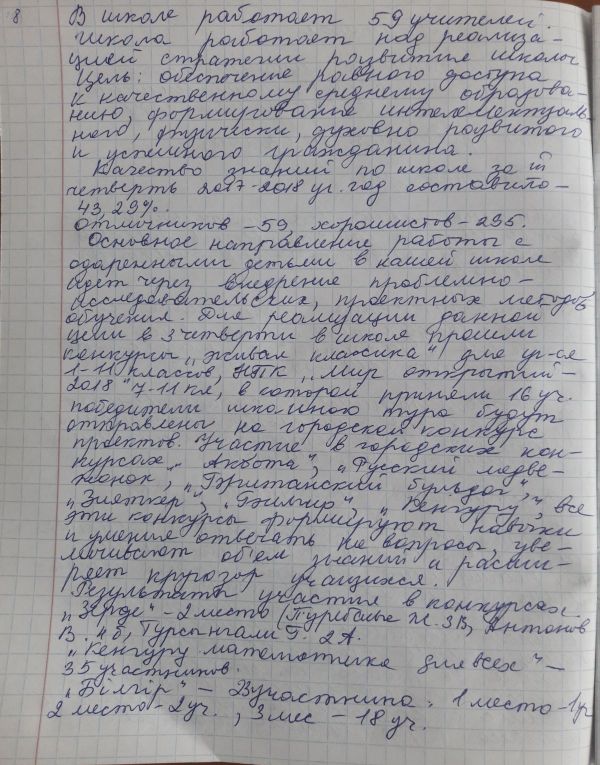 8
В школе работает 59 учителей.
Школа работает над реализа-
цией стратегии развития школы
Цель: обеспечение равного доступа
к качественному среднему образова-
нию, формирование интелектуаль-
ного, физически, духовно розвитого
и успешного гражданина.
Качество знаний по школе за III
четверть 2017-2018 уг. год составило-
43,29%.
Отличников - 59, хорошистов - 235.
Основное направление работы с
одаренными детьми в нашей школе
идет через внедрение проблемно-
исследовательских, проектных методов
обучения. Для реализации данной
цели в 3 четверти в школе прошли
конкурсы „Живая классика" для уч-ся
1-11 классов, НПК „Мир открытий-
2018" 7-11 кл, в которой приняли 16 уч.
победители школьного тура будут
отправлены на городской конкурс
проектов. Участие в городских кон-
курсах „Акбота", „Русский медве-
жонок, „Британский бульдог",
„Зияткер", „Билгир", „Кенгуру", все
эти конкурсы формируют навыки
и умения отвечать на вопросы, уве-
личивают объем знаний и расши-
ряет кругозор учащихся.
Результаты участия в конкурсах.
„Зерде" - 2 место ( Ж. 3В, Антонов
В. 4б, Турсынгали Г. 2А.
„Кенгуру математика для всех" -
35 участников.
„Білгір" - участника: 1 место - 1уч
2 место - 2 уч., 3 мес - 18 уч.